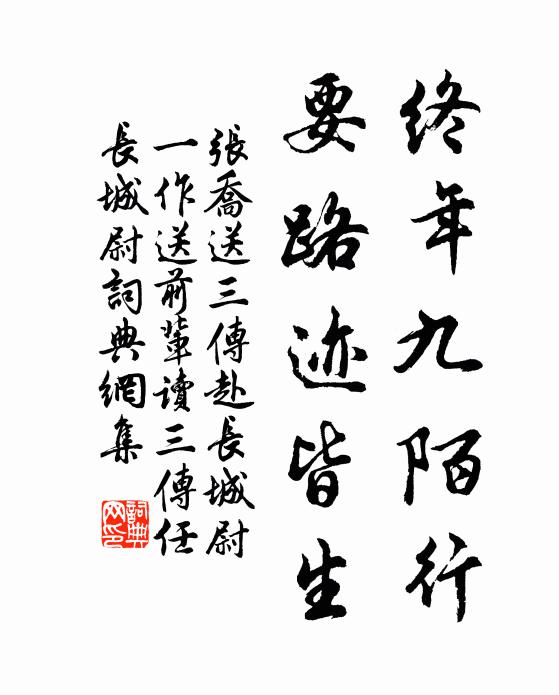 終年九陌行
要路迹皆生
張喬送三傳赴長城尉
一作送前輩讀三傳任
長城尉詞典網集
詞典
网印